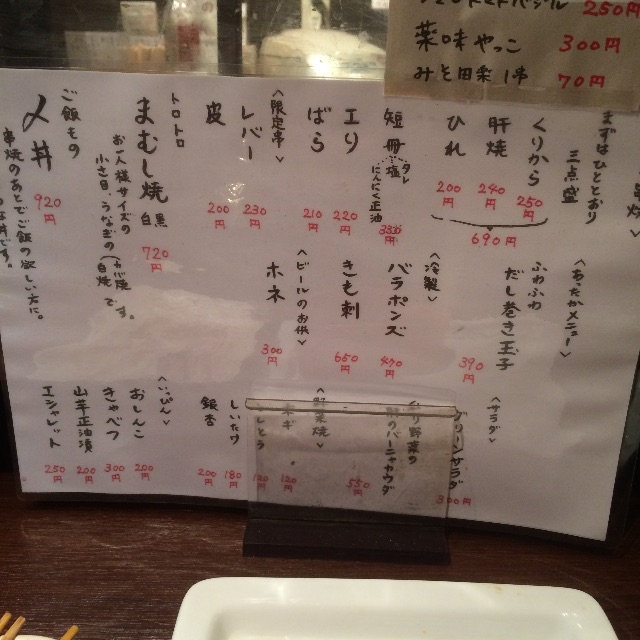 250円
薬味やっこ 300円
みそ田楽1串 70円
まずはひととおり
三点盛
くりから 250円
肝焼 240円
ひれ 200円
690円
短冊
塩
タレ
にんにく正油
330円
エリ 220円
ばら 210円
〈限定串〉
レバー 230円
皮 200円
トロトロ
まむし焼 白 黒 720円
お一人様サイズの
ご飯もの
〆丼 920円
串焼のあとでご飯の欲しい方に。
〈あったかメニュー〉
ふわふわ
だし巻き玉子 390円
〈冷製〉
バラポンズ 490円
きも刺 650円
〈ビールのお供〉
ホネ 300円
〈サラダ〉
グリーンサラダ
野菜の
バーニャカウダ 550円
〈野菜焼〉
120円
しいたけ 180円
銀杏 200円
おしんこ 250円
きゃべつ 300円
山芋正油漬 200円
エシャレット 250円